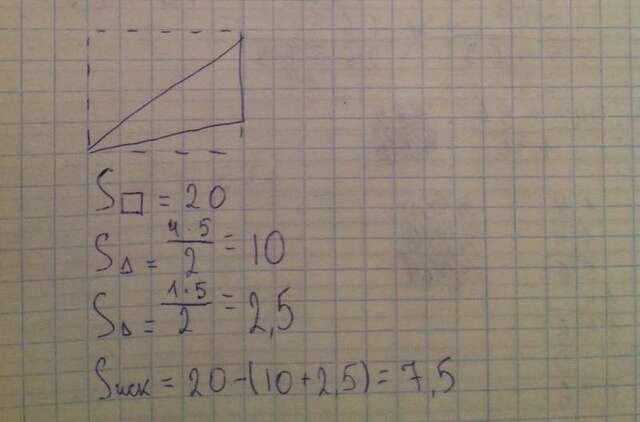 S□ = 20
S△ = 4·5/2 = 10
S△ = 1·5/2 = 2,5
Sиск = 20-(10+2,5)=7,5